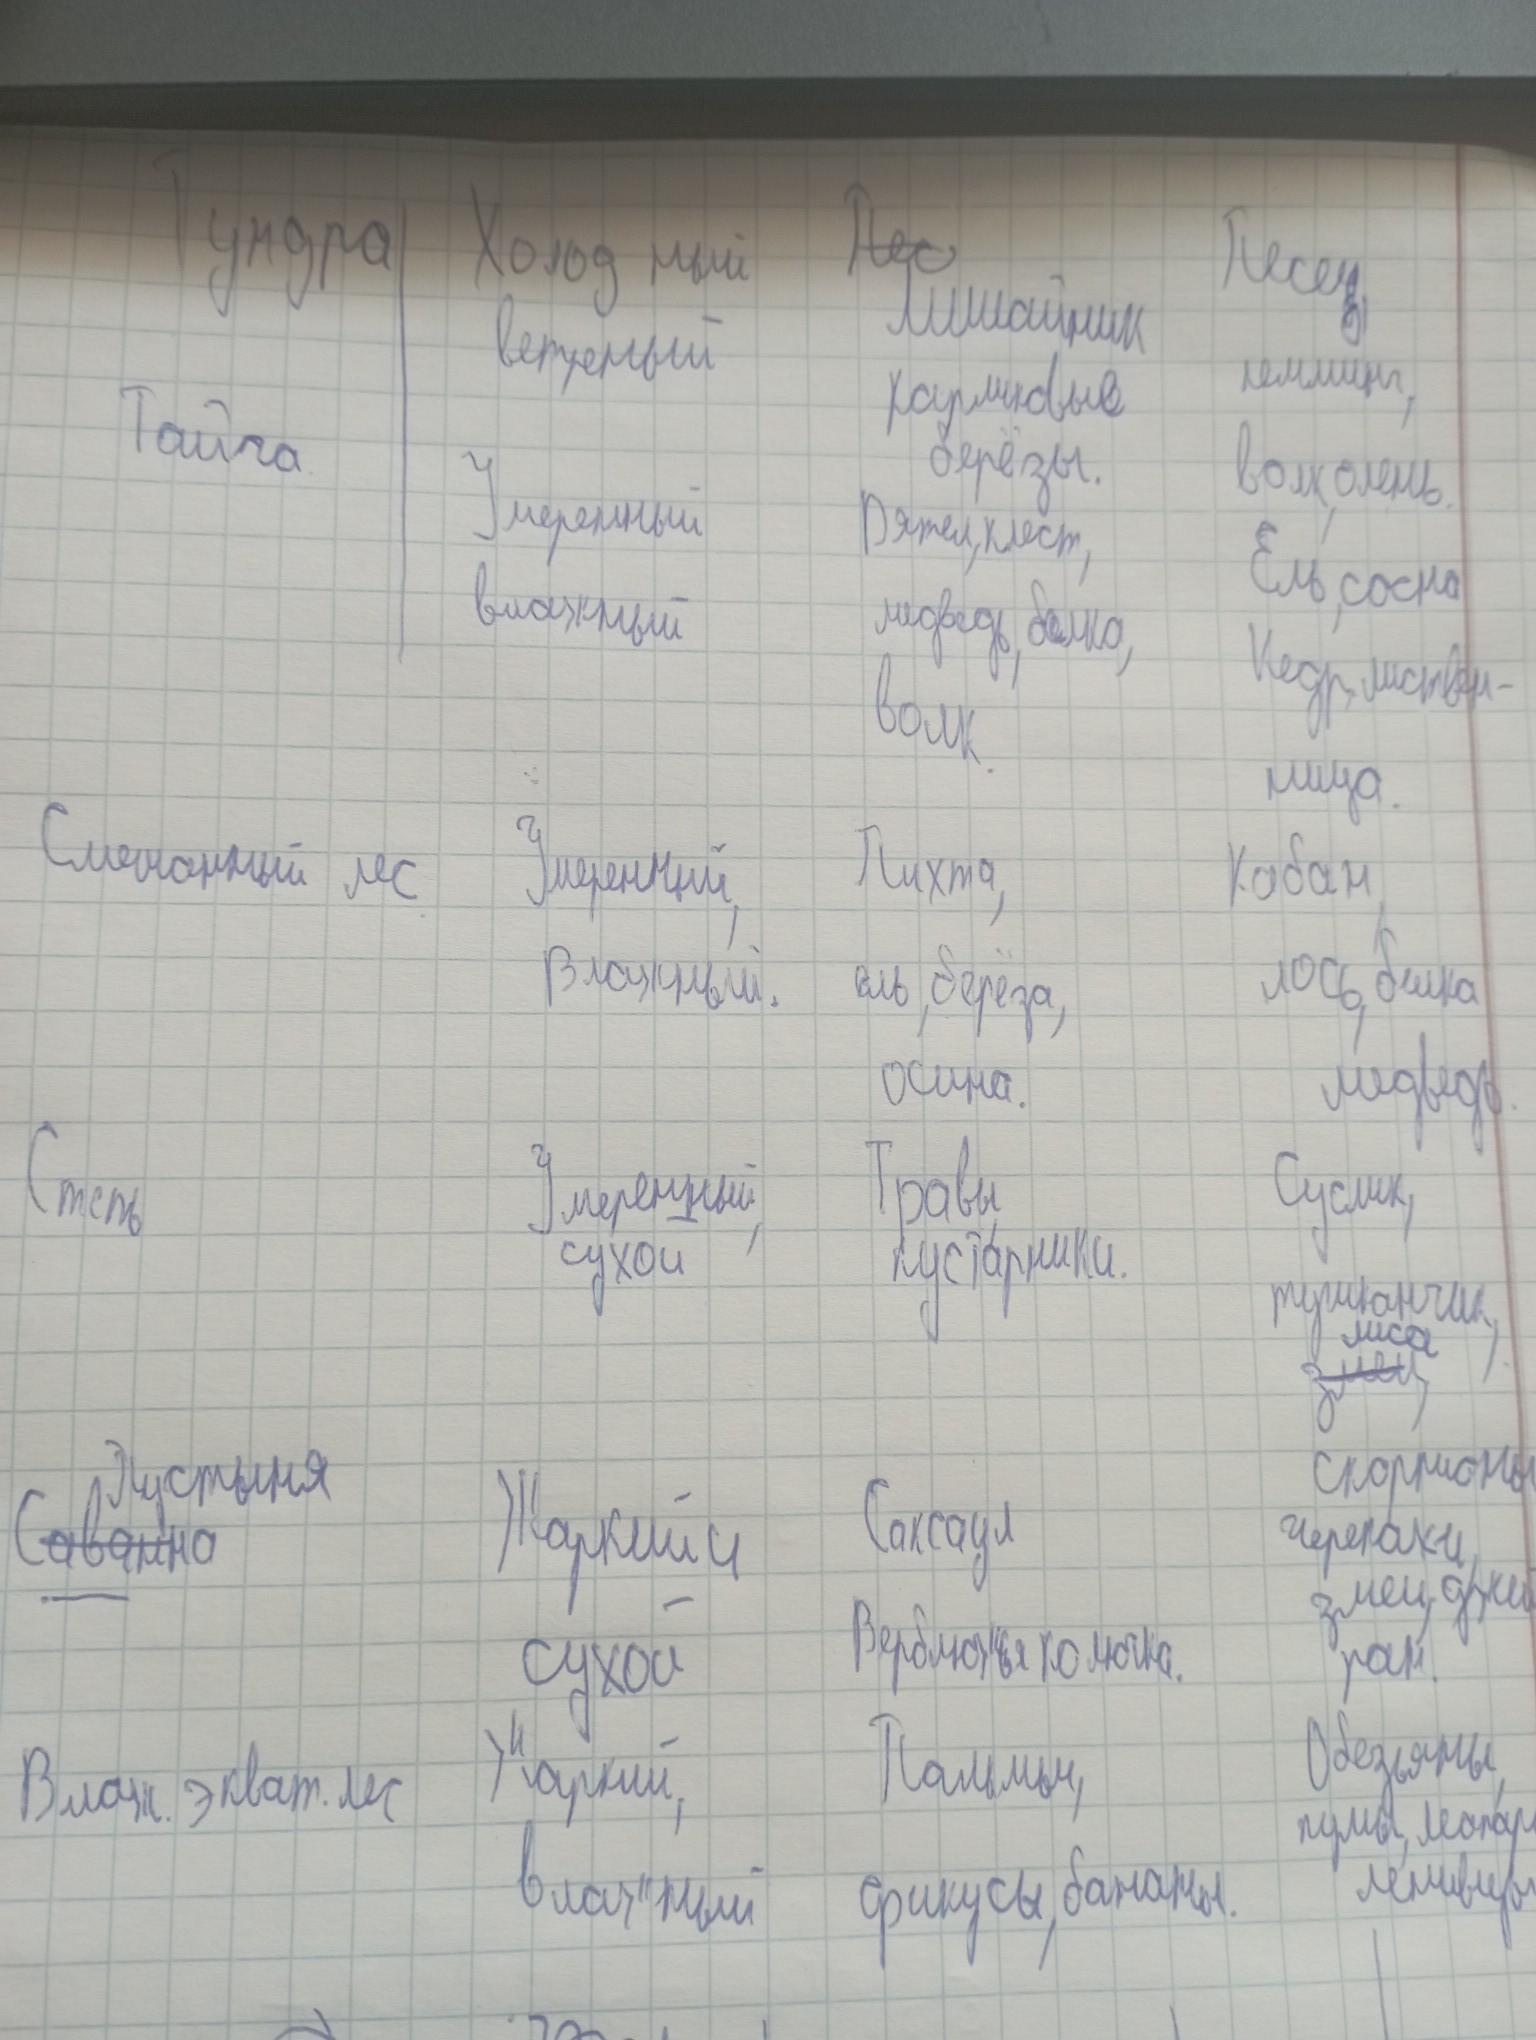 Тундра Холодный Песец
Лишайник
ветреный
карликовые лемминг,
Тайга берёзы. волк, олень.
Умеренный Дятел, клест, Ель, сосна
влажный медведь, белка, Кедр, листвен-
волк. ница.
Смешанный лес Умеренный, Пихта, Кабан,
Влажный. ель, берёза, лось, белка
осина. медведь.
Степь Умеренный, Травы, Суслик,
сухой кустарники. тушканчик,
лиса
змеи,
Пустыня скорпионы
Саванна Жаркий и Саксаул черепахи,
змеи, джей
сухой Верблюжья колючка. ран.
Влаж. экват. лес Жаркий, Пальмы, Обезьяны,
пумы, леопар
влажный фикусы, бананы. ленивцы